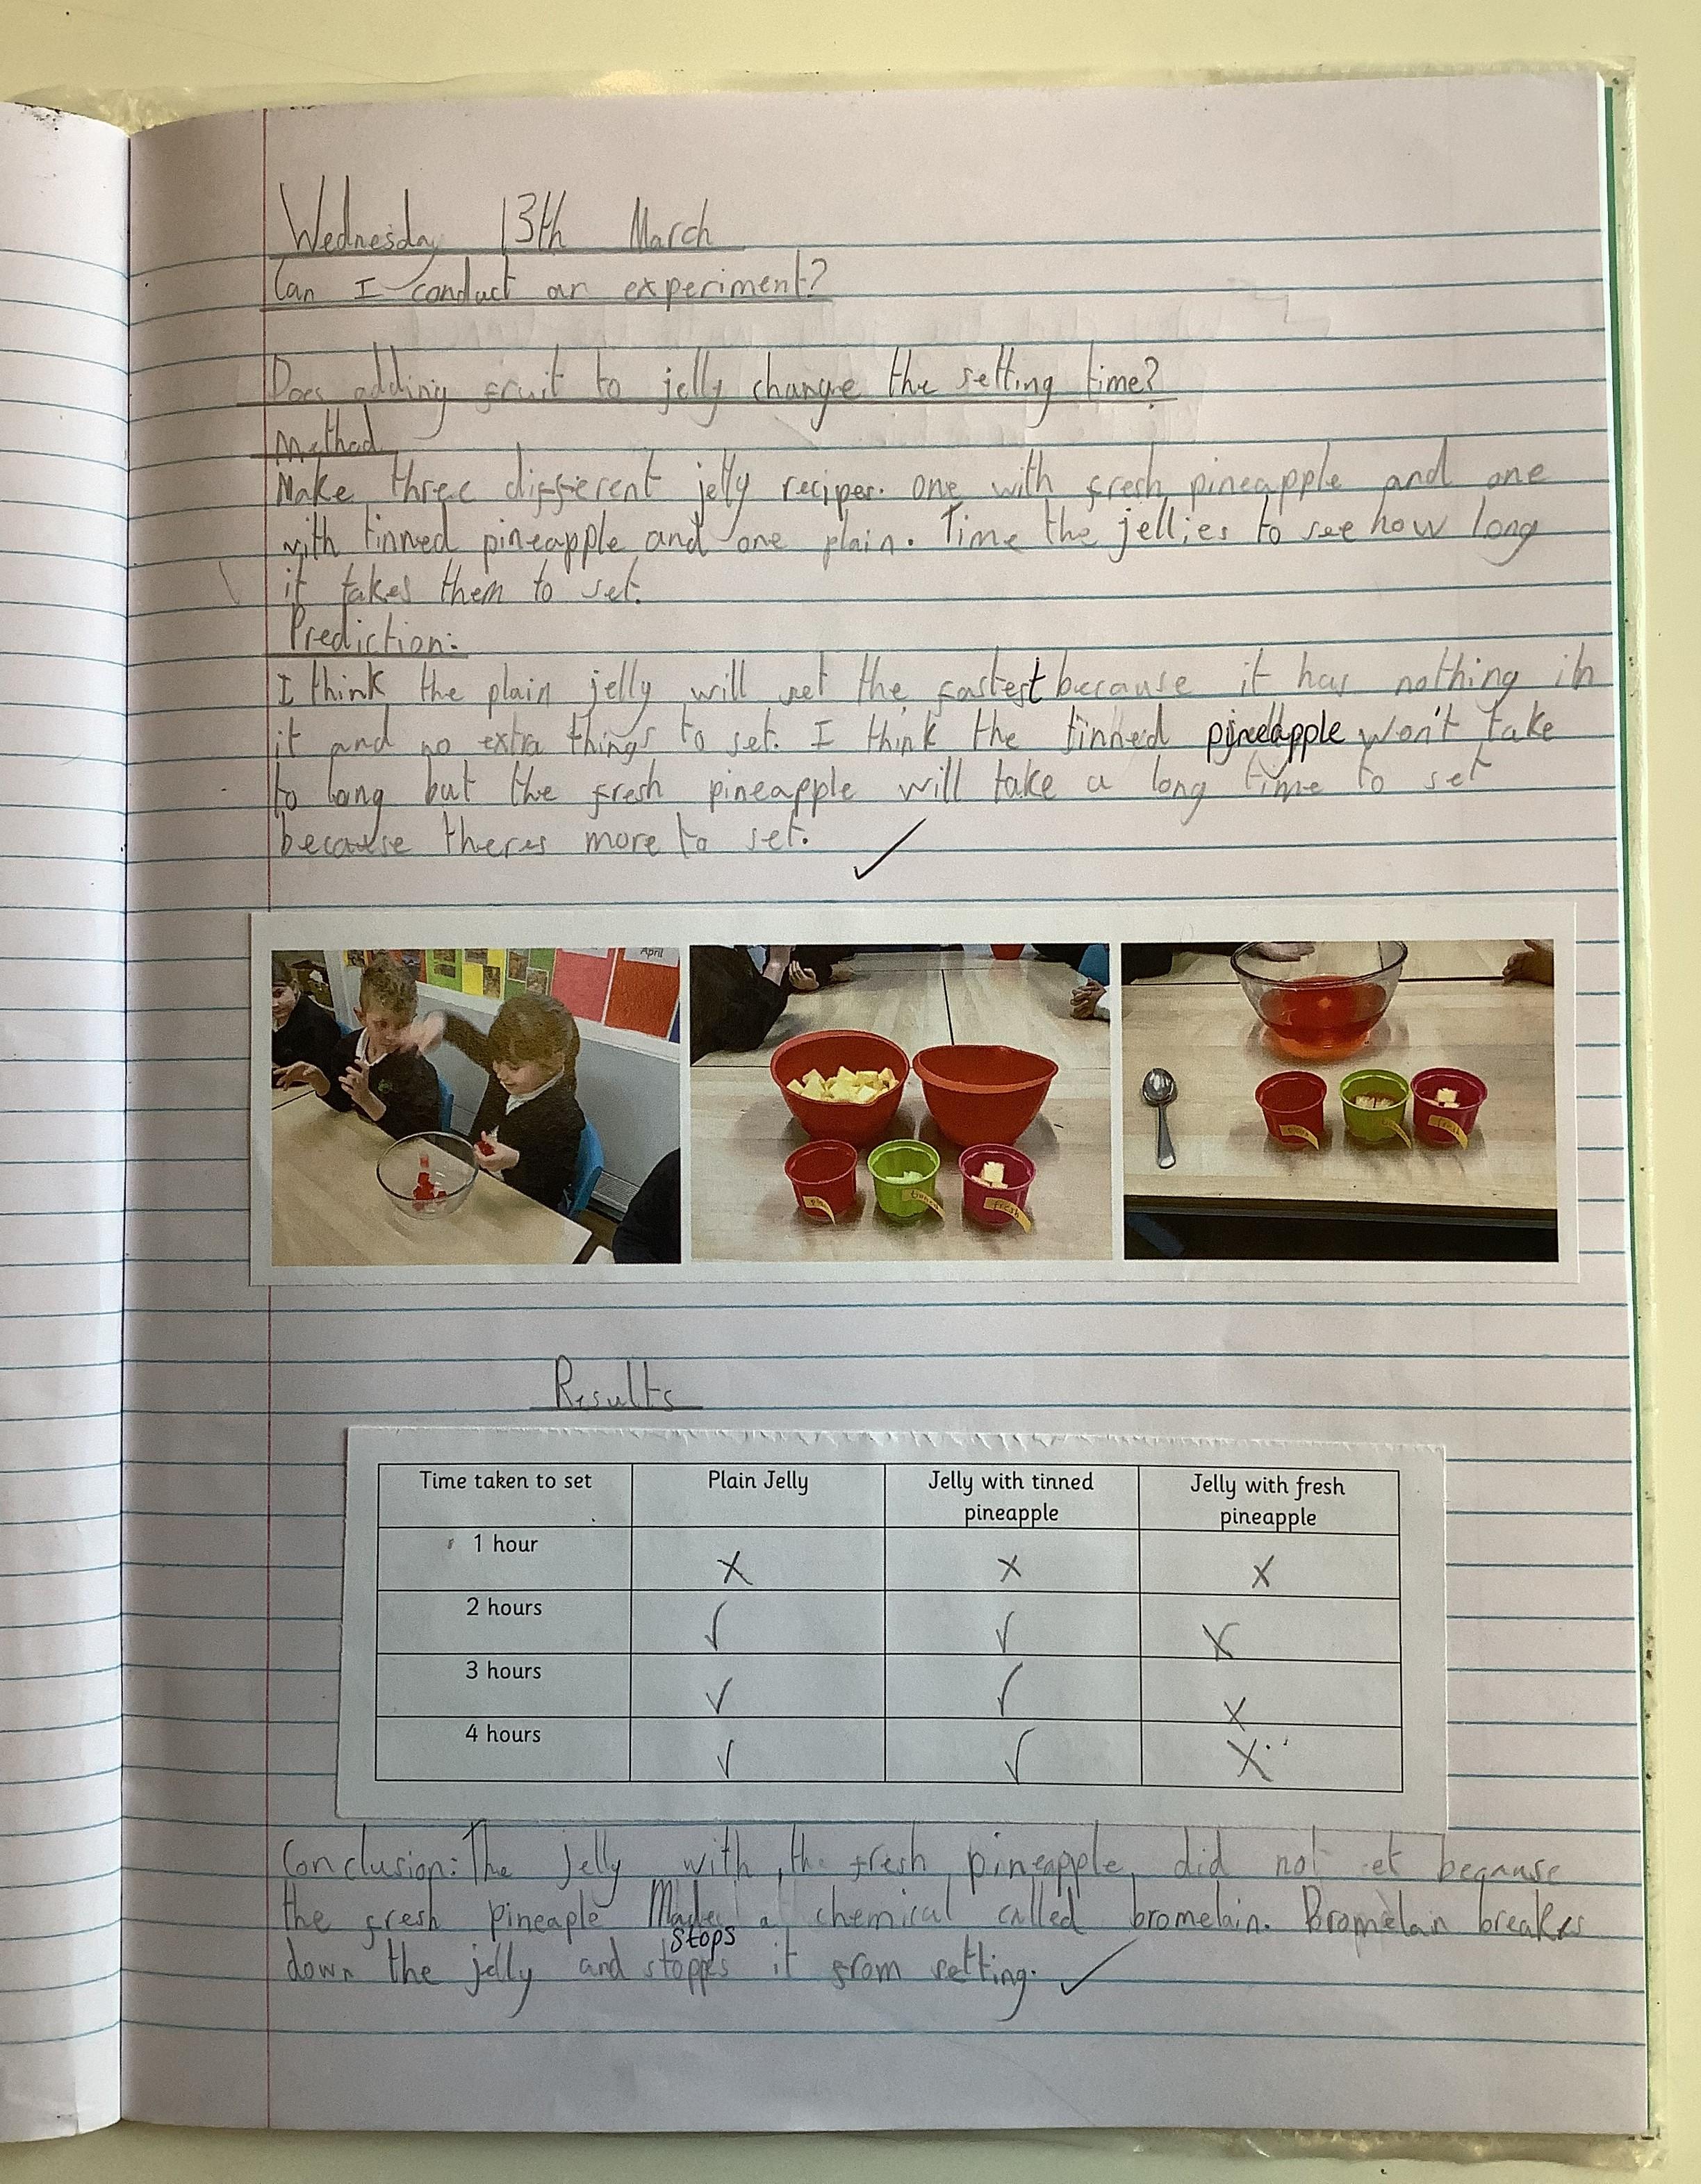 Wednesday 13th March
Can I conduct an experiment?
Does adding fruit to jelly change the setting time?
Method
Make three different jelly recipes. one with fresh pineapple and one
with tinned pineapple and one plain. Time the jellies to see how long
it takes them to set.
Prediction:
I think the plain jelly will set the fastest because it has nothing in
it and no extra things to set. I think the tinned pineapple won't take
to long but the fresh pineapple will take a long time to set
because theres more to set.
✓
April
fresh
fresh
Results
Time taken to set Plain Jelly Jelly with tinned pineapple Jelly with fresh pineapple
1 hour X X X
2 hours ✓ ✓ X
3 hours ✓ ✓ X
4 hours ✓ ✓ X
Conclusion: The jelly with the fresh pineapple did not set because
the fresh pineaple Made a chemical called bromelain. Bromelain breakes
stops
down the jelly and stoppes it from setting. ✓